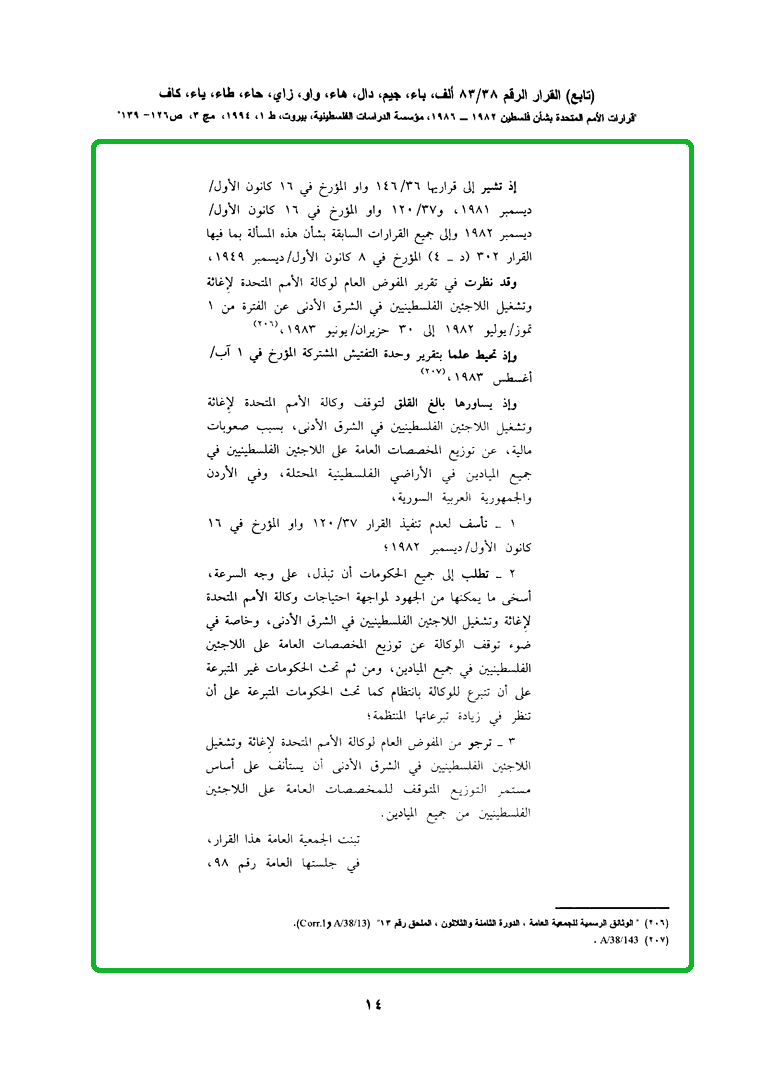 (تابع) القرار الرقم ٨٣/٣٨ ألف، باء، جيم، دال، هاء، واو، زاي، حاء، طاء، ياء، كاف
"قرارات الأمم المتحدة بشأن فلسطين ١٩٨٢ ــ ١٩٨٦، مؤسسة الدراسات الفلسطينية، بيروت، ط ١، ١٩٩٤، مج ٣، ص١٢٦- ١٣٩"
إذ تشير إلى قراريها ١٤٦/٣٦ واو المؤرخ في ١٦ كانون الأول/
ديسمبر ١٩٨١، و١٢٠/٣٧ واو المؤرخ في ١٦ كانون الأول/
ديسمبر ١٩٨٢ وإلى جميع القرارات السابقة بشأن هذه المسألة بما فيها
القرار ٣٠٢ (د ـ ٤) المؤرخ في ٨ كانون الأول/ديسمبر ١٩٤٩،
وقد نظرت في تقرير المفوض العام لوكالة الأمم المتحدة لإغاثة
وتشغيل اللاجئين الفلسطينيين في الشرق الأدنى عن الفترة من ١
تموز/يوليو ١٩٨٢ إلى ٣٠ حزيران/يونيو ١٩٨٣،(٢٠٦)
وإذ تحيط علما بتقرير وحدة التفتيش المشتركة المؤرخ في ١ آب/
أغسطس ١٩٨٣،(٢٠٧)
وإذ يساورها بالغ القلق لتوقف وكالة الأمم المتحدة لإغاثة
وتشغيل اللاجئين الفلسطينيين في الشرق الأدنى، بسبب صعوبات
مالية، عن توزيع المخصصات العامة على اللاجئين الفلسطينيين في
جميع الميادين في الأراضي الفلسطينية المحتلة، وفي الأردن
والجمهورية العربية السورية،
١ ـ تأسف لعدم تنفيذ القرار ١٢٠/٣٧ واو المؤرخ في ١٦
كانون الأول/ديسمبر ١٩٨٢؛
٢ ـ تطلب إلى جميع الحكومات أن تبذل، على وجه السرعة،
أسخى ما يمكنها من الجهود لمواجهة احتياجات وكالة الأمم المتحدة
لإغاثة وتشغيل اللاجئين الفلسطينيين في الشرق الأدنى، وخاصة في
ضوء توقف الوكالة عن توزيع المخصصات العامة على اللاجئين
الفلسطينيين في جميع الميادين، ومن ثم تحث الحكومات غير المتبرعة
على أن تتبرع للوكالة بانتظام كما تحث الحكومات المتبرعة على أن
تنظر في زيادة تبرعاتها المنتظمة؛
٣ ـ ترجو من المفوض العام لوكالة الأمم المتحدة لإغاثة وتشغيل
اللاجئين الفلسطينيين في الشرق الأدنى أن يستأنف على أساس
مستمر التوزيع المتوقف للمخصصات العامة على اللاجئين
الفلسطينيين من جميع الميادين.
تبنت الجمعية العامة هذا القرار،
في جلستها العامة رقم ٩٨،
(٢٠٦) "الوثائق الرسمية للجمعية العامة ، الدورة الثامنة والثلاثون ، الملحق رقم ١٣" (A/38/13 وCorr.1).
(٢٠٧) A/38/143 .
١٤